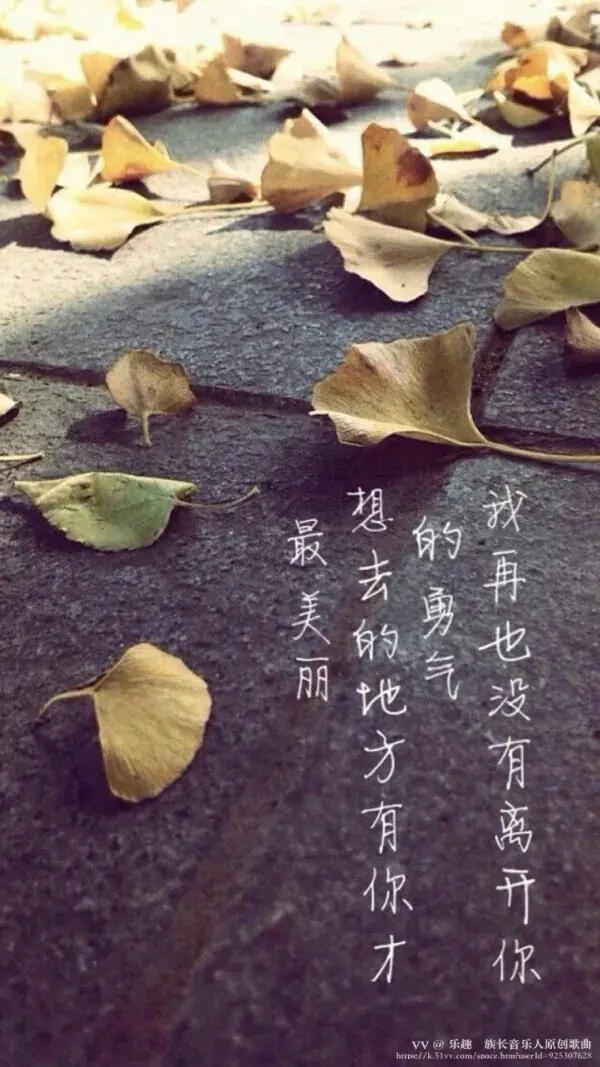 我再也没有离开你
的勇气
想去的地方有你才
最美丽
VV @ 乐趣 族长音乐人原创歌曲
https://k.51vv.com/space.htm?userId=925307628